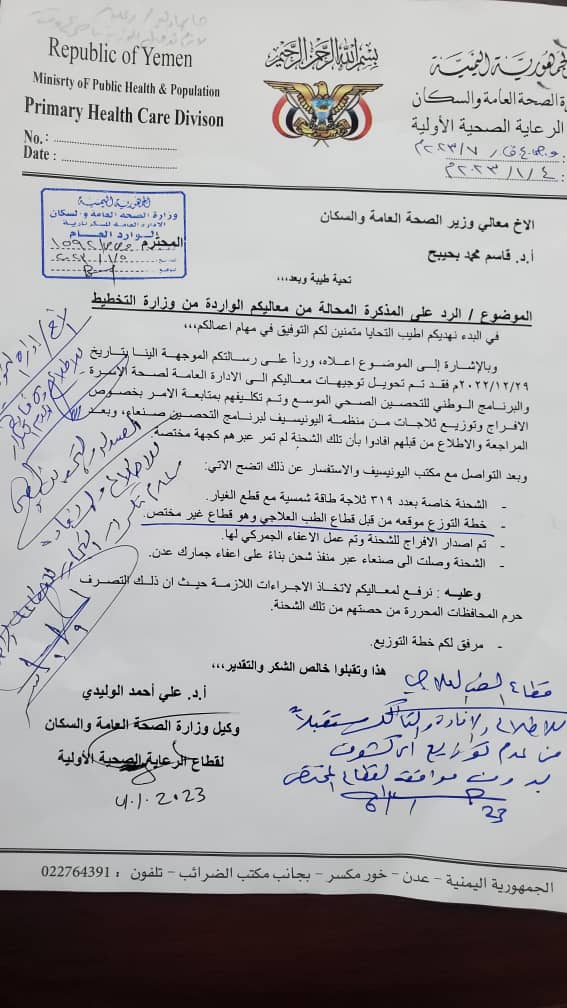 Republic of Yemen
Minisrty oF Public Health & Population
Primary Health Care Divison
No. :
Date :
بسم الله الرحمن الرحيم
الجمهورية اليمنية
وزارة الصحة العامة والسكان
الرعاية الصحية الأولية
٢٠٢٣/١/٤م
الجمهورية اليمنية
وزارة الصحة العامة والسكان
الوارد العام
الاخ معالي وزير الصحة العامة والسكان
أ.د. قاسم محمد بحيبح
المحترم
تحية طيبة وبعد،،،
الموضوع / الرد على المذكرة المحالة من معاليكم الواردة من وزارة التخطيط
في البدء نهديكم اطيب التحايا متمنين لكم التوفيق في مهام اعمالكم،،،
وبالإشارة إلى الموضوع اعلاه، ورداً على رسالتكم الموجهة الينا بتاريخ
٢٠٢٢/١٢/٢٩م فقد تم تحويل توجيهات معاليكم الى الادارة العامة لصحة الاسرة
والبرنامج الوطني للتحصين الصحي الموسع وتم تكليفهم بمتابعة الامر بخصوص
الافراج وتوزيع ثلاجات من منظمة اليونيسيف لبرنامج التحصين صنعاء، وبعد
المراجعة والاطلاع من قبلهم افادوا بأن تلك الشحنة لم تمر عبرهم كجهة مختصة.
وبعد التواصل مع مكتب اليونيسيف والاستفسار عن ذلك اتضح الاتي:
- الشحنة خاصة بعدد ٣١٩ ثلاجة طاقة شمسية مع قطع الغيار.
- خطة التوزع موقعه من قبل قطاع الطب العلاجي وهو قطاع غير مختص.
- تم اصدار الافراج للشحنة وتم عمل الاعفاء الجمركي لها.
- الشحنة وصلت الى صنعاء عبر منفذ شحن بناءً على اعفاء جمارك عدن.
وعليه : نرفع لمعاليكم لاتخاذ الاجراءات اللازمة حيث ان ذلك التصرف
حرم المحافظات المحررة من حصتهم من تلك الشحنة.
- مرفق لكم خطة التوزيع.
هذا وتقبلوا خالص الشكر والتقدير،،،
أ.د. علي أحمد الوليدي
وكيل وزارة الصحة العامة والسكان
لقطاع الرعاية الصحية الأولية
4.1.2023
قطاع الطب العلاجي
للاطلاع والافادة والتأكد مستقبلاً
من عدم توزيع أي كشوف
بدون موافقة القطاع المختص
الجمهورية اليمنية - عدن - خور مكسر - بجانب مكتب الضرائب - تلفون : 022764391